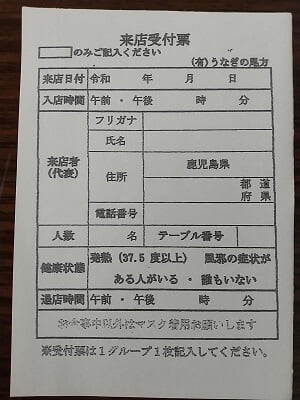 来店受付票
のみご記入ください
(有)うなぎの尾方
来店日付 令和 年 月 日
入店時間 午前・午後 時 分
来店者(代表) フリガナ
氏名
住所 鹿児島県
都 道
府 県
電話番号
人数 名 テーブル番号
健康状態 発熱(37.5 度以上) 風邪の症状が
ある人がいる ・ 誰もいない
退店時間 午前・午後 時 分
お食事中以外はマスク着用お願いします
※受付票は1グループ1枚記入してください。